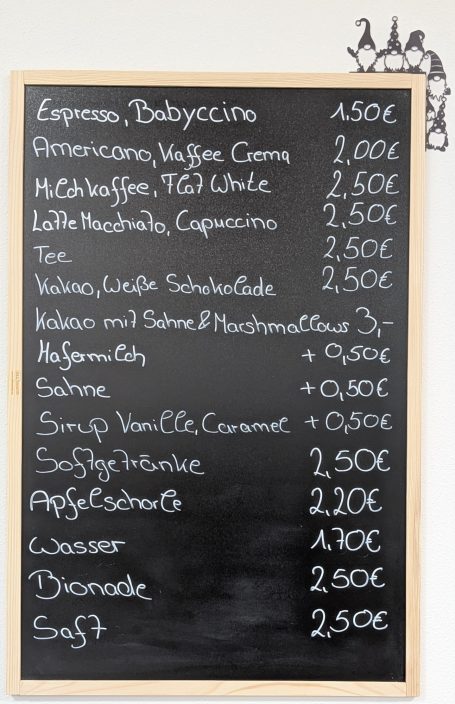 Espresso, Babyccino 1.50€
Americano, Kaffee Crema 2,00€
Milchkaffee, Flat White 2,50€
Latte Macchiato, Capuccino 2,50€
Tee 2,50€
Kakao, Weiße Schokolade 2,50€
Kakao mit Sahne & Marshmallows 3,-
Hafermilch + 0,50€
Sahne + 0,50€
Sirup Vanille, Caramel + 0,50€
Softgetränke 2,50€
Apfelschorle 2,20€
Wasser 1.70€
Bionade 2,50€
Saft 2,50€